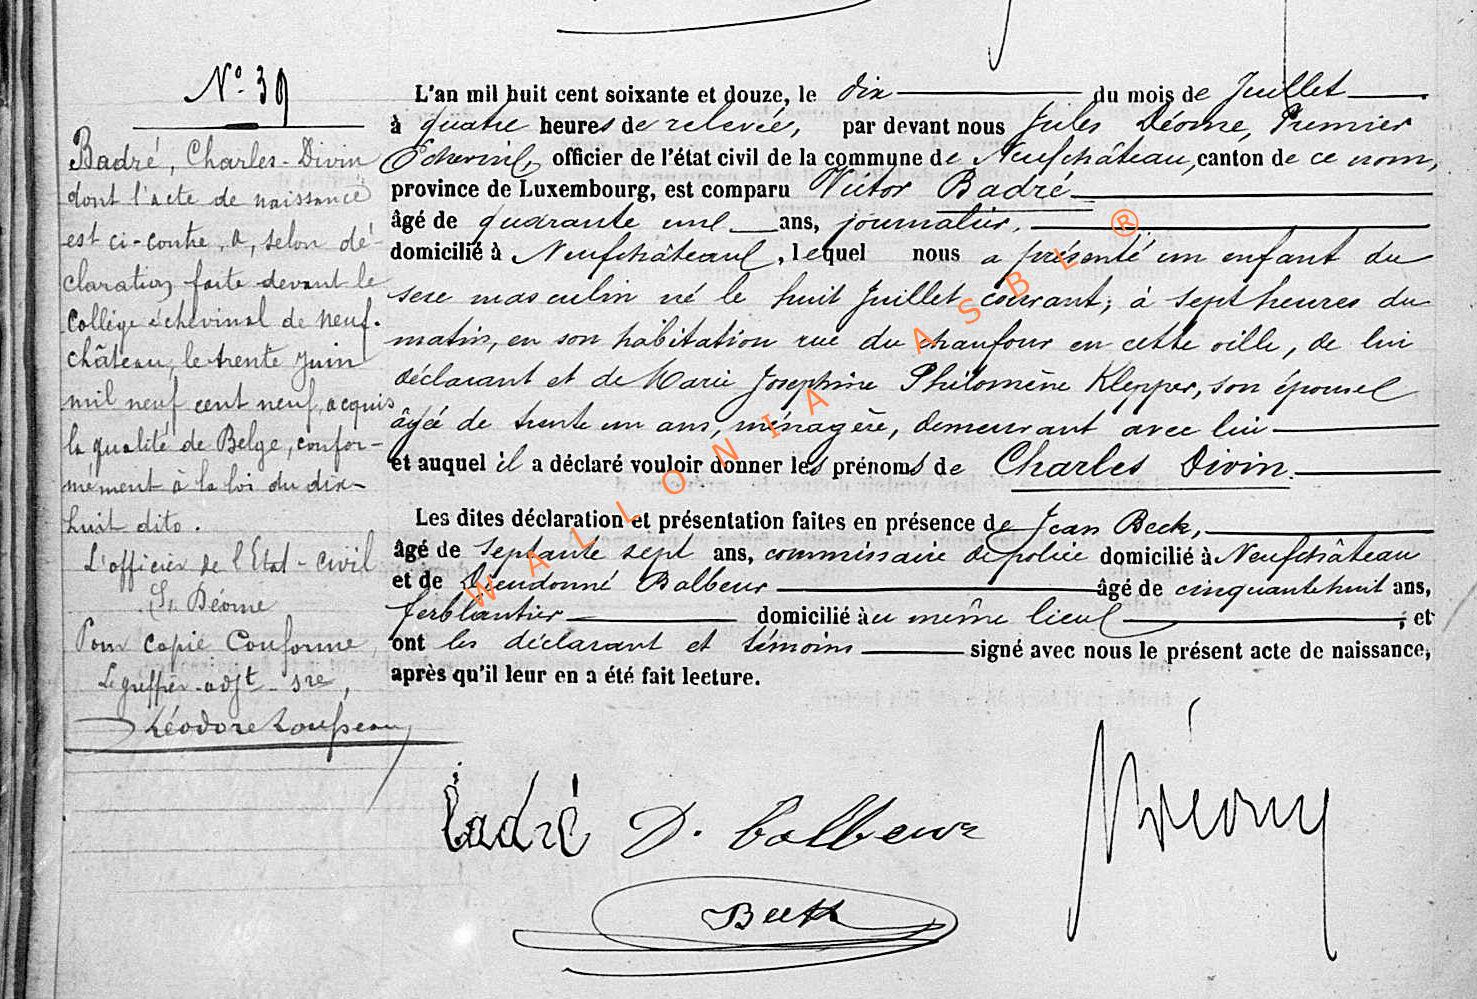 N° 39
Badré, Charles-Divin
dont l'acte de naissance
est ci-contre, a, selon dé-
claration faite devant le
Collège échevinal de Neuf-
château, le trente juin
mil neuf cent neuf, acquis
la qualité de Belge, confor-
mément à la loi du dix-
huit dito.
L'officier de l'Etat-civil
Déome
Pour copie Conforme,
Le greffier-adjt-
L'an mil huit cent soixante et douze, le dix du mois de Juillet
à quatre heures de relevée, par devant nous Jules Déome, Premier
Echevin, officier de l'état civil de la commune de Neufchâteau, canton de ce nom,
province de Luxembourg, est comparu Victor Badré
âgé de quarante un ans, journalier,
domicilié à Neufchâteau, lequel nous a présenté un enfant du
sexe masculin né le huit Juillet courant, à sept heures du
matin, en son habitation rue du chaufour en cette ville, de lui
déclarant et de Marie Josephine Philomène Klepper, son épouse
âgée de trente un ans, ménagère, demeurant avec lui
et auquel il a déclaré vouloir donner les prénoms de Charles Divin.
Les dites déclaration et présentation faites en présence de Jean Beck,
âgé de septante sept ans, commissaire de police domicilié à Neufchâteau
et de Dieudonné Balbeur âgé de cinquante huit ans,
ferblantier domicilié au même lieu ; et
ont les déclarant et témoins signé avec nous le présent acte de naissance,
après qu'il leur en a été fait lecture.
Badré D. Balbeur
Déome
Beck
WALLONIA ASBL ®